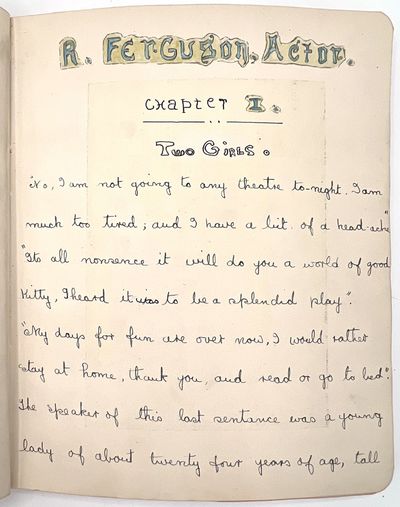 R. Ferguson, Actor.
Chapter I.
Two Girls.
"No, I am not going to any theatre to-night. I am
much too tired; and I have a bit of a head-ache"
"Its all nonsence it will do you a world of good
Kitty, I heard it was to be a splendid play".
"My days for fun are over now, I would rather
stay at home, thank you, and read or go to bed".
The speaker of this last sentence was a young
lady of about twenty four years of age, tall